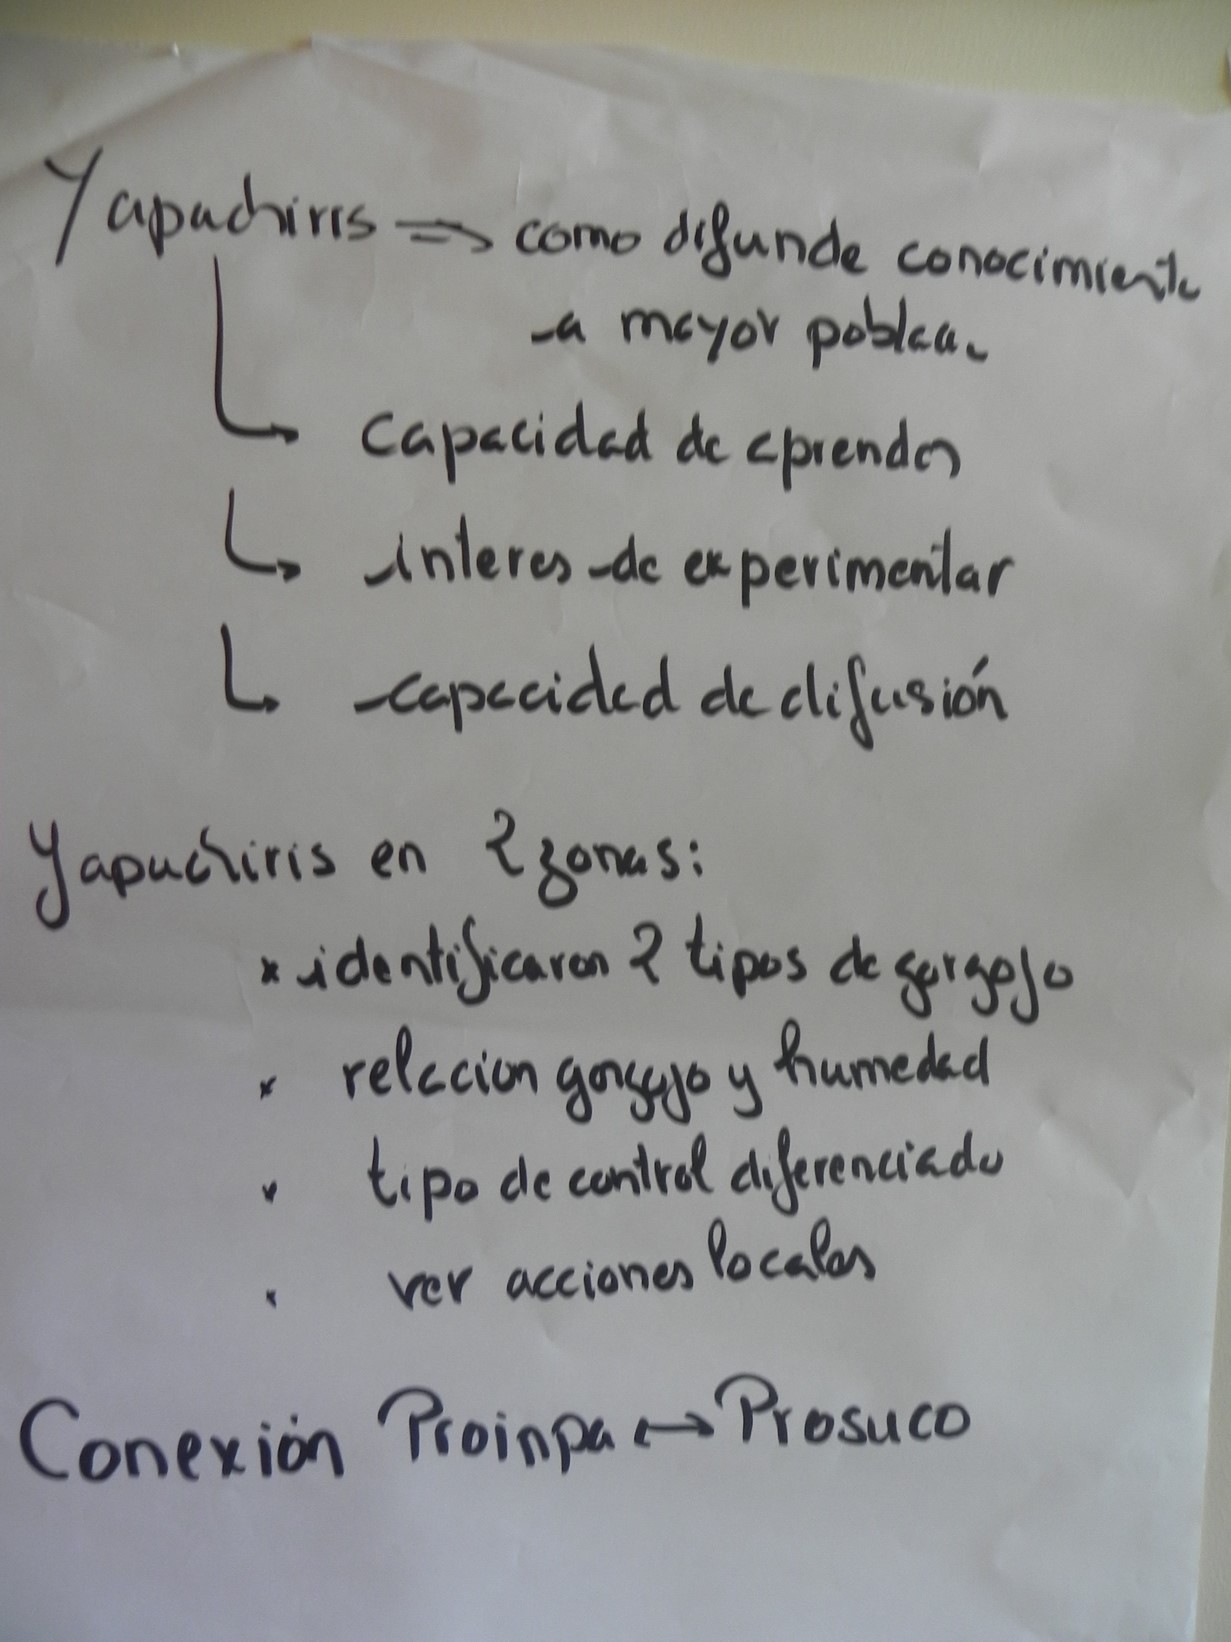 Yapuchiris ⇒ como difunde conocimiento
a mayor poblac.
↳ capacidad de aprender
↳ interes de experimentar
↳ capacidad de difusión
Yapuchiris en 2 zonas:
* identificaron 2 tipos de gorgojo
* relacion gorgojo y humedad
* tipo de control diferenciado
* ver acciones locales
Conexión Proinpa ↔ Prosuco